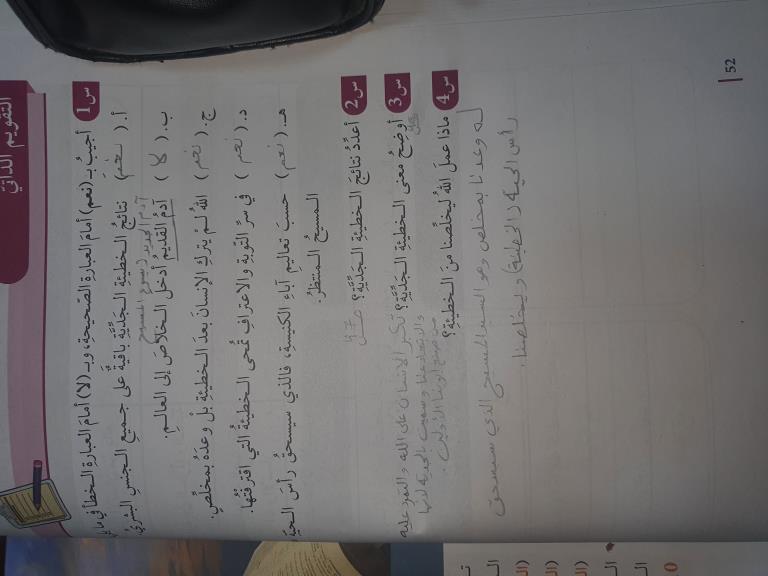 التقويم الذاتي
س1 أجيبُ بـ (نعم) أمامَ العبارةِ الصّحيحةِ، وبـ (لا) أمامَ العبارةِ الخطأ في ما
أ. ( نعم ) نتائجُ الخطيئةِ الجَدِّيَّةِ باقيةٌ على جميعِ الجنسِ البشريِّ
آدم الجديد (يسوع المسيح
ب. ( لا ) آدمُ القديمُ أدخلَ الخلاصَ إلى العالمِ.
ج. ( نعم ) اللهُ لمْ يتركِ الإنسانَ بعدَ الخطيئةِ بلْ وعدَهُ بمخلّصٍ.
د. ( نعم ) في سرِّ التّوبةِ والاعترافِ تُمحى الخطيئةُ التي اقترفتُها.
هـ. ( نعم ) حسبَ تعاليمِ آباءِ الكنيسةِ، فالذي سيسحقُ رأسَ الحيّة
المسيحُ المنتظرُ.
س2 أعدّدُ نتائجَ الخطيئةِ الجَدِّيَّةِ؟
س3 أوضحُ معنى الخطيئةِ الجَدِّيَّةِ؟ تكبر الانسان على الله والتمرد عليه
والابتعاد عنا وسميت بالجدية لانها
من صنع ابوينا الأولين.
س4 ماذا عملَ اللهُ ليخلّصَنا منَ الخطيئةِ؟
له وعدنا بمخلص وهو السيد المسيح الذي سيسحق
رأس الحية (الخطيئة) ويخلصنا.
52